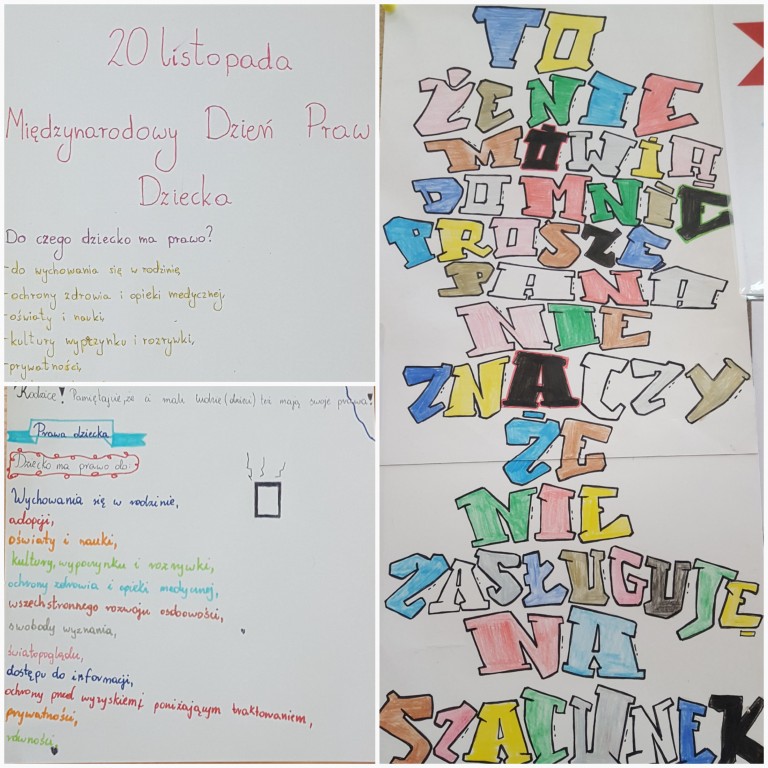 20 listopada
Międzynarodowy Dzień Praw
Dziecka
Do czego dziecko ma prawo?
-do wychowania się w rodzinie,
-ochrony zdrowia i opieki medycznej,
-oświaty i nauki,
-kultury wypoczynku i rozrywki,
-prywatności,
Rodzice! Pamiętajcie, że ci mali ludzie (dzieci) też mają swoje prawa!
Prawa dziecka
Dziecko ma prawo do:
Wychowania się w rodzinie,
adopcji,
oświaty i nauki,
kultury, wypoczynku i rozrywki,
ochrony zdrowia i opieki medycznej,
wszechstronnego rozwoju osobowości,
swobody wyznania,
światopoglądu,
dostępu do informacji,
ochrony przed wyzyskiem i poniżającym traktowaniem,
prywatności,
równości,
TO
ŻE NIE
MÓWIĄ
DO MNIE
PROSZĘ
PANA
NIE
ZNACZY
ŻE
NIE
ZASŁUGUJĘ
NA
SZACUNEK